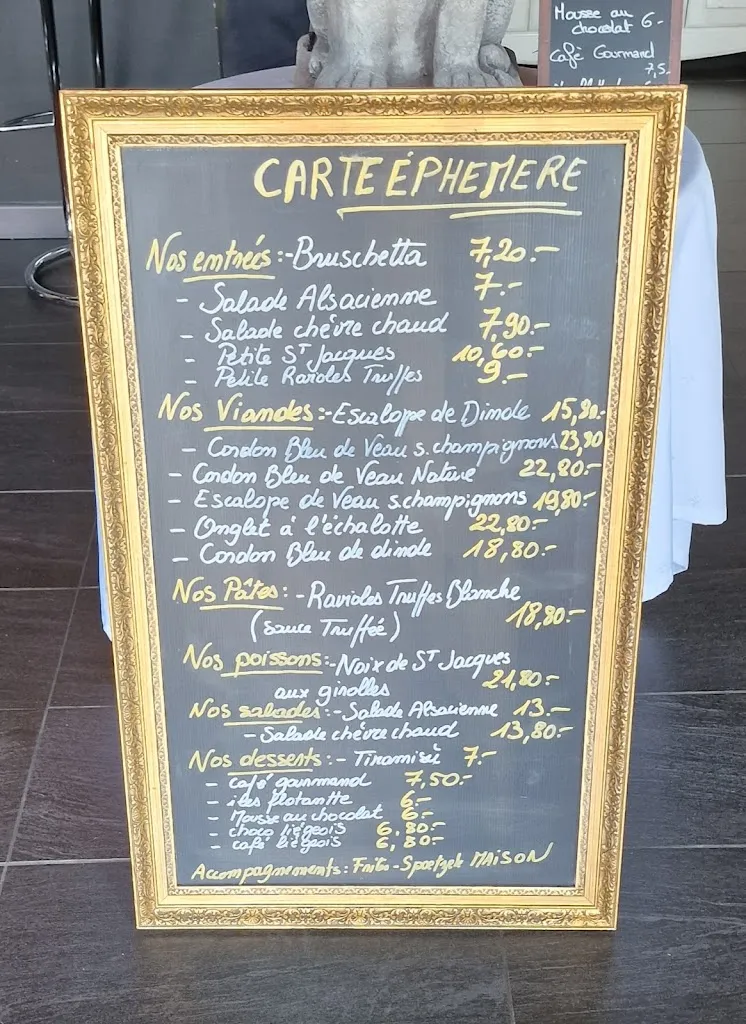 Mousse au
chocolat 6.-
Café Gourmand
7,5
CARTE ÉPHEMERE
Nos entrés :- Bruschetta 7,20.-
- Salade Alsacienne 7.-
- Salade chèvre chaud 7,90.-
- Petite St Jacques 10,60.-
- Petite Ravioles Truffes 9.-
Nos Viandes :- Escalope de Dinde 15,80.-
- Cordon Bleu de Veau s. champignons 23,80
- Cordon Bleu de Veau Nature 22,80.-
- Escalope de Veau s. champignons 19,80.-
- Onglet à l'échalotte 22,80.-
- Cordon Bleu de dinde 18,80.-
Nos Pâtes : - Ravioles Truffes Blanche
(sauce Truffée) 18,80.-
Nos poissons :- Noix de St Jacques
aux girolles 21,80.-
Nos salades :- Salade Alsacienne 13.-
- Salade chèvre chaud 13,80.-
Nos desserts :- Tiramisu 7.-
- Café gourmand 7,50.-
- iles flotantte 6.-
- Mousse au chocolat 6.-
- choco liégeois 6,80.-
- café liégeois 6,80.-
Accompagnements : Frites - Spaetzele MAISON